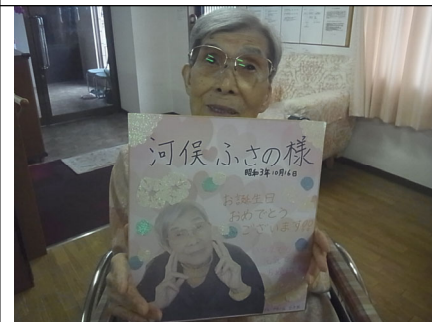 河俣 ふさの様
昭和3年10月16日
お誕生日
おめでとう
ございます